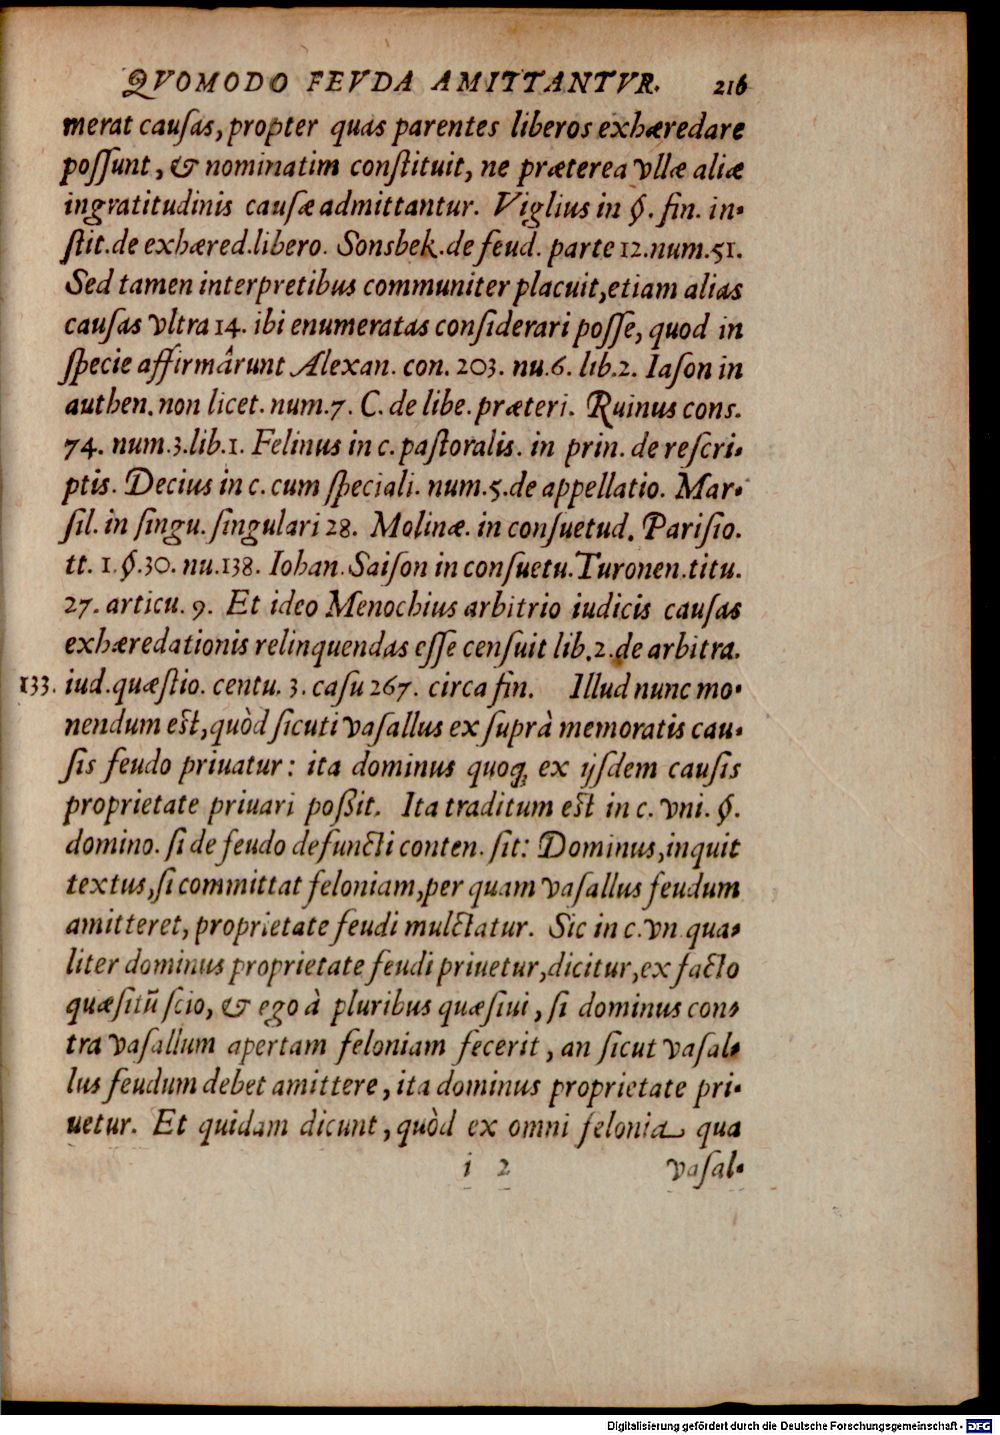 QVOMODO FEVDA AMITTANTVR. 216
merat cauſas, propter quas parentes liberos exhæredare
poſſunt, & nominatim conſtituit, ne præterea vllæ aliæ
ingratitudinis cauſæ admittantur. Viglius in §. fin. in-
ſtit. de exhæred. libero. Sonsbek. de feud. parte 12. num. 51.
Sed tamen interpretibus communiter placuit, etiam alias
cauſas vltra 14. ibi enumeratas conſiderari poſſe, quod in
ſpecie affirmârunt Alexan. con. 203. nu. 6. lib. 2. Iaſon in
authen. non licet. num. 7. C. de libe. præteri. Ruinus cons.
74. num. 3. lib. 1. Felinus in c. paſtoralis. in prin. de reſcri-
ptis. Decius in c. cum ſpeciali. num. 5. de appellatio. Mar-
ſil. in ſingu. ſingulari 28. Molinæ. in conſuetud. Pariſio.
tt. 1. §. 30. nu. 138. Iohan. Saiſon in conſuetu. Turonen. titu.
27. articu. 9. Et ideo Menochius arbitrio iudicis cauſas
exhæredationis relinquendas eſſe cenſuit lib. 2. de arbitra.
133. iud. quæſtio. centu. 3. caſu 267. circa fin. Illud nunc mo-
nendum eſt, quòd ſicuti vaſallus ex ſuprà memoratis cau-
ſis feudo priuatur: ita dominus quoq; ex ijſdem cauſis
proprietate priuari poßit. Ita traditum eſt in c. vni. §.
domino. ſi de feudo defuncti conten. ſit: Dominus, inquit
textus, ſi committat feloniam, per quam vaſallus feudum
amitteret, proprietate feudi mulctatur. Sic in c. vn. qua-
liter dominus proprietate feudi priuetur, dicitur, ex facto
quæſitũ ſcio, & ego à pluribus quæſiui, ſi dominus con-
tra vaſallum apertam feloniam fecerit, an ſicut vaſal-
lus feudum debet amittere, ita dominus proprietate pri-
uetur. Et quidam dicunt, quòd ex omni felonia qua
i 2 vaſal-
Digitalisierung gefördert durch die Deutsche Forschungsgemeinschaft - DFG